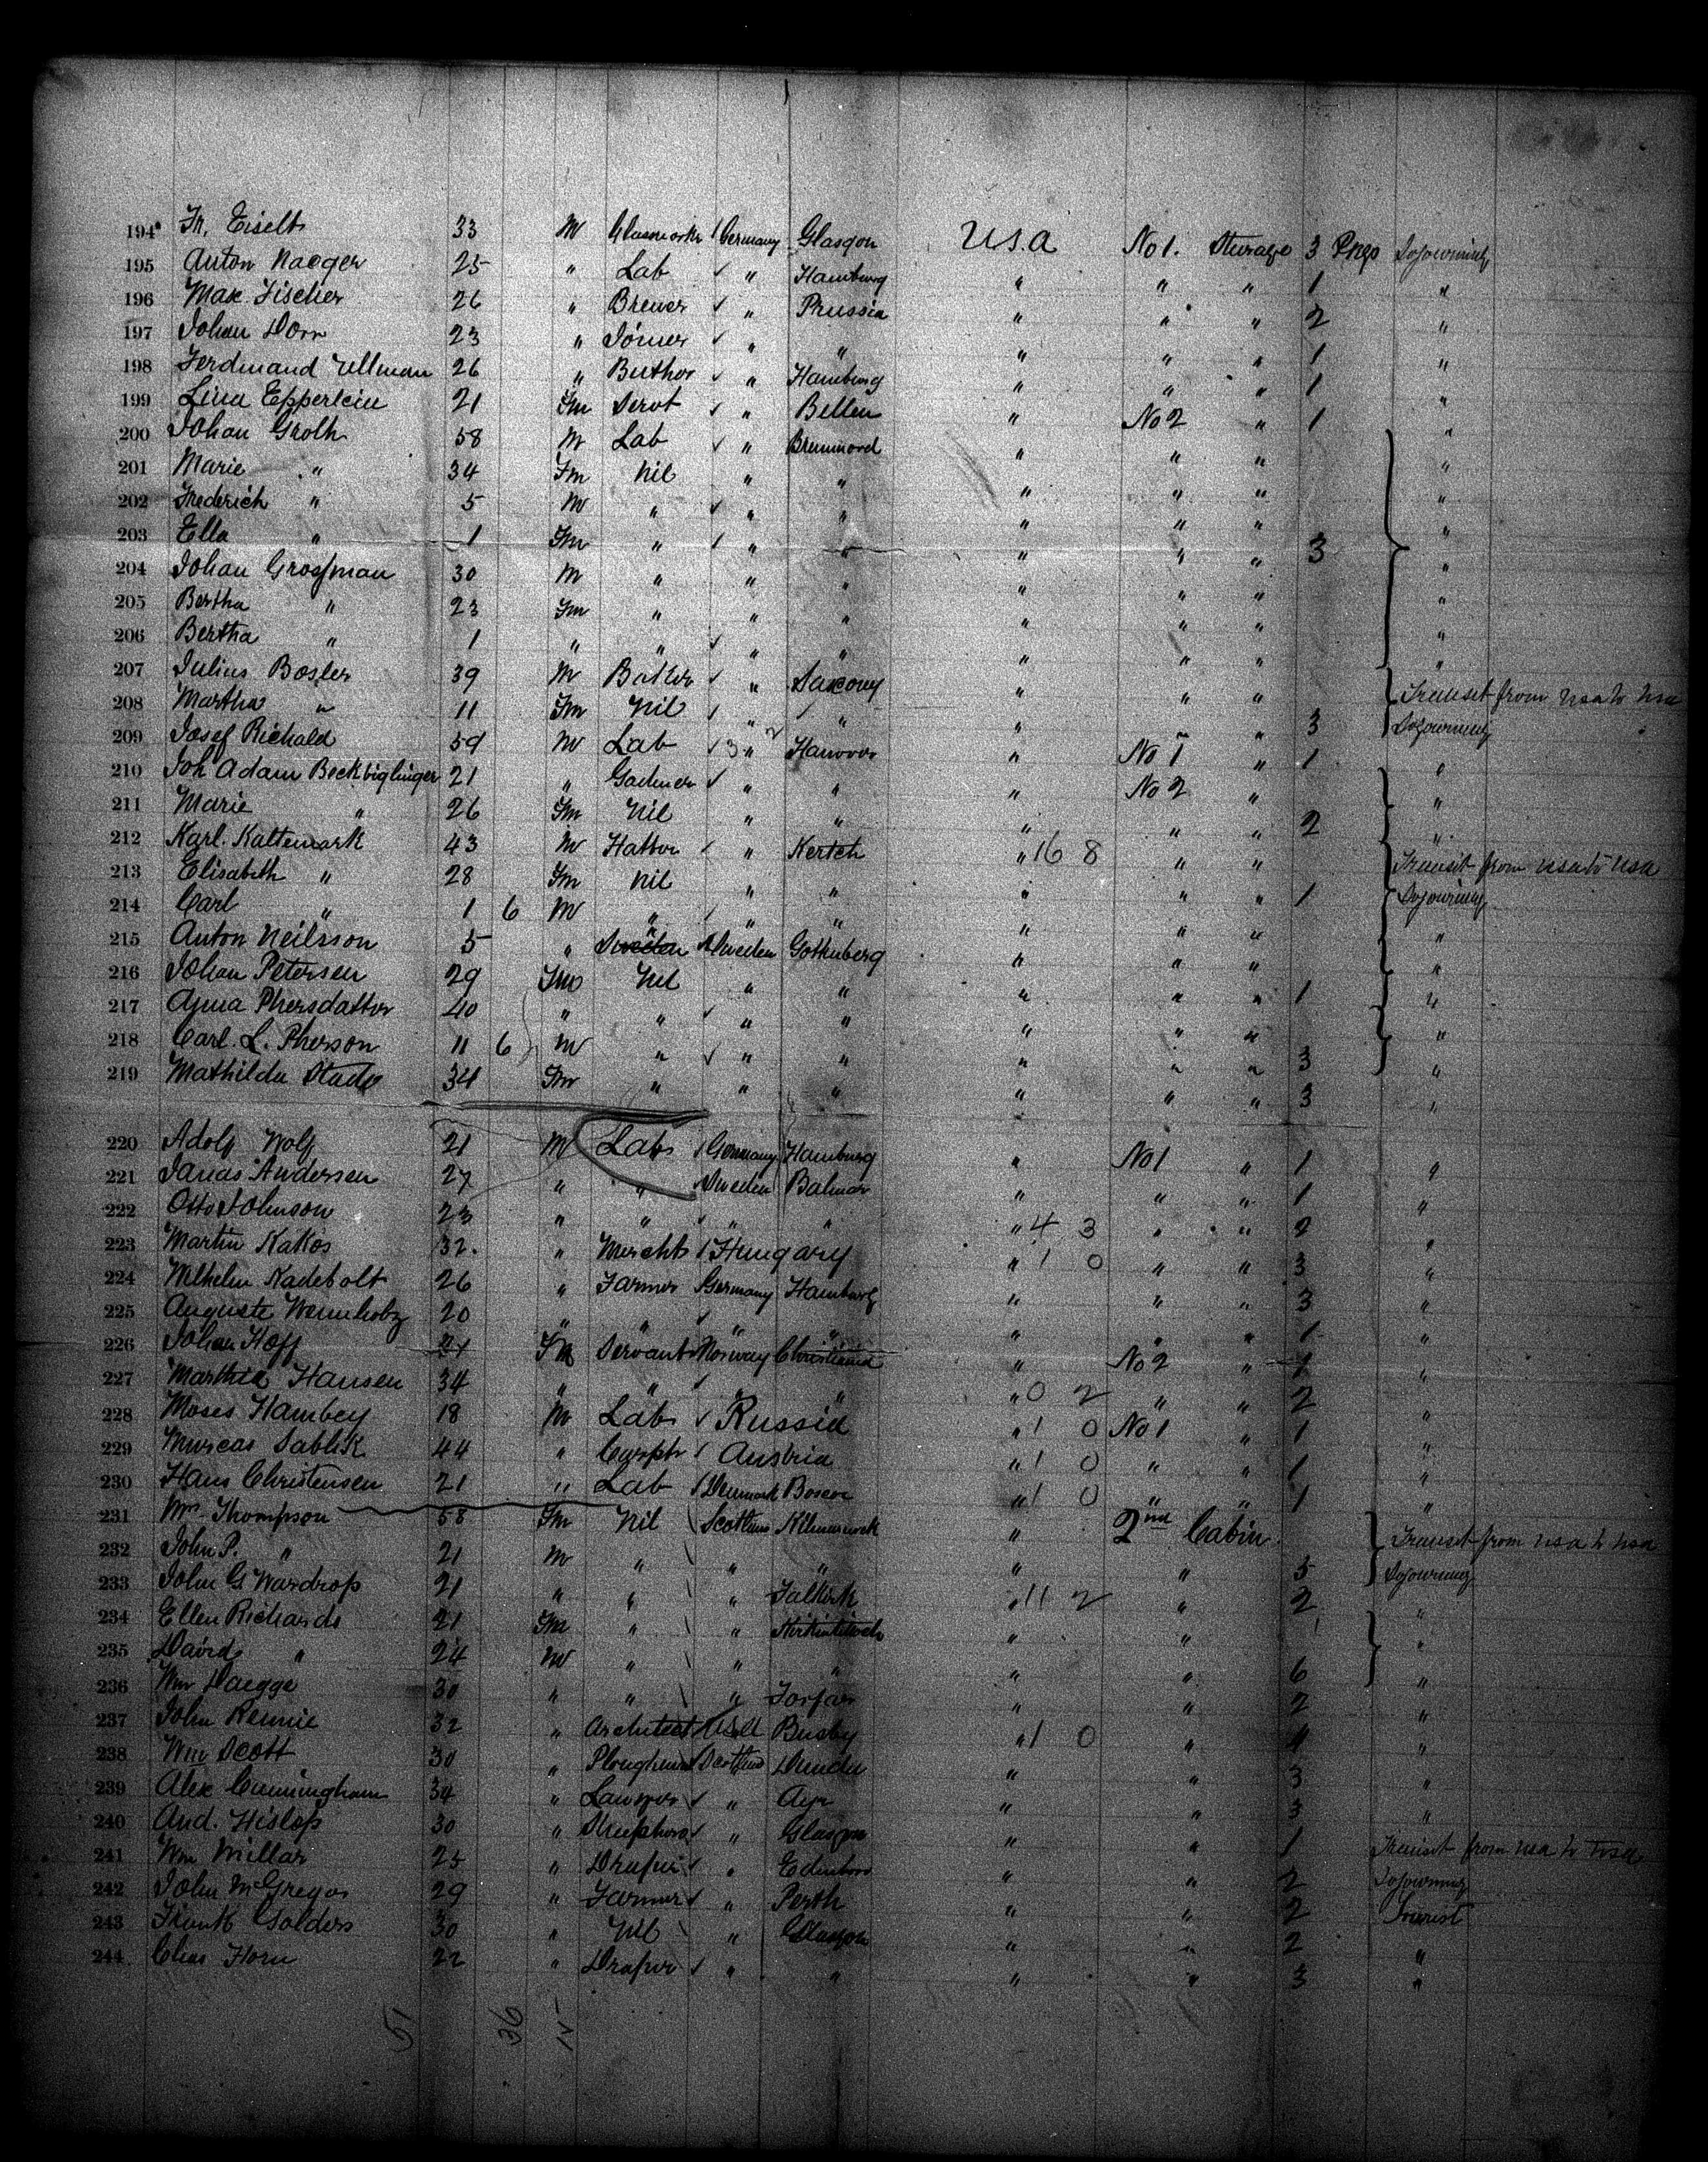 194 Fr. Eiselt 33 M Glasswork Germany Glasgow USA No 1. Sturage 3 Pkgs Sojourning
195 Anton Naeger 25 " Lab " Hamburg " " " 1 "
196 Max Fischer 26 " Brewer " Prussia " " " 2 "
197 Johan Dorr 23 " Joiner " " " " " 1 "
198 Ferdinand Ullman 26 " Buther " Hamburg " " " 1 "
199 Lina Epperlein 21 Fm Servt " Bellen " No 2 " 1 "
200 Johan Groth 58 M Lab " " " "
201 Marie " 34 Fm Nil " " " " " "
202 Frederich " 5 M " " " " " " "
203 Ella " 1 Fm " " " " " " 3 "
204 Johan Grossman 30 M " " " " " " "
205 Bertha " 23 Fm " " " " " " "
206 Bertha " 1 " " " " " " " "
207 Julius Bosler 39 M " Saxony " " " Transit from USA to USA
208 Martha " 11 Fm Nil " " " " " 3 Sojourning
209 Josef Richald 59 M Lab 3 " Hanover " No 1 " 1 "
210 Joh Adam Beckbiglinger 21 " " " " No 2 " "
211 Marie " 26 Fm Nil " " " " " 2 "
212 Karl. Kaltemark 43 M Hatter " Kertch " 16 8 " " Transit from USA to USA
213 Elisabeth " 28 Fm Nil " " " " " 1 Sojourning
214 Carl " 1 6 M " " " " " " "
215 Anton Neilsson 5 " Sweden Sweden Gothenberg " " " "
216 Johan Petersen 29 Fm Nil " " " " " 1 "
217 Anna Phersdatter 40 " " " " " " " "
218 Carl. L. Pherson 11 6 M " " " " " " 3 "
219 Mathilda Stade 34 Fm " " " " " " 3 "
220 Adolf Wolf 21 M Lab Germany Hamburg " No 1 " 1 "
221 Janas Andersen 27 " " Sweden Balmar " " " 1 "
222 Otto Johnson 23 " " " " " 4 3 " " 2 "
223 Martin Kakos 32. " Mercht Hungary " 1 0 " " 3 "
224 Wilhelm Kadebolt 26 " Farmer Germany Hamburg " " " 3 "
225 Auguste 20 " " " " " " " 1 "
226 Johan Hoff 21 Fm Servant Norway Christiania " No 2 " 1 "
227 Marthia Hansen 34 " " " " " 0 2 " " 2 "
228 Moses Hambey 18 M Lab Russia " 1 0 No 1 " 1 "
229 Murcas Sablik 44 " Carptr Austria " 1 0 " " 1 "
230 Hans Christensen 21 " Lab Denmark " 1 0 " " 1 "
231 Mrs Thompson 58 Fm Nil Scotland Kilmarnock " 2nd Cabin Transit from USA to USA
232 John P. " 21 M " " " " " 5 Sojourning
233 John G Wardrop 21 " " " Falkirk " 11 2 " 2 "
234 Ellen Richards 21 Fm " " Kirkintiloch " " "
235 David " 24 M " " " " " 6 "
236 Wm Daegge 30 " " " Forfar " " 2 "
237 John Rennie 32 " Architect USA Busby " 1 0 " "
238 Wm Scott 30 " Ploughman Scotland Dundee " " 3 "
239 Alex Cunningham 34 " Lawyer " Ayr " " 3 "
240 And. Hislop 30 " " Glasgow " " 1 Transit from USA to USA
241 Wm Millar 25 " Draper " Edinboro " " 2 Sojourning
242 John McGregor 29 " Farmer " Perth " " 2 Tourist
243 Frank Golders 30 " Nil " Glasgow " " 2 "
244 Chas Horn 22 " Draper " " " " 3 "
51 36 15